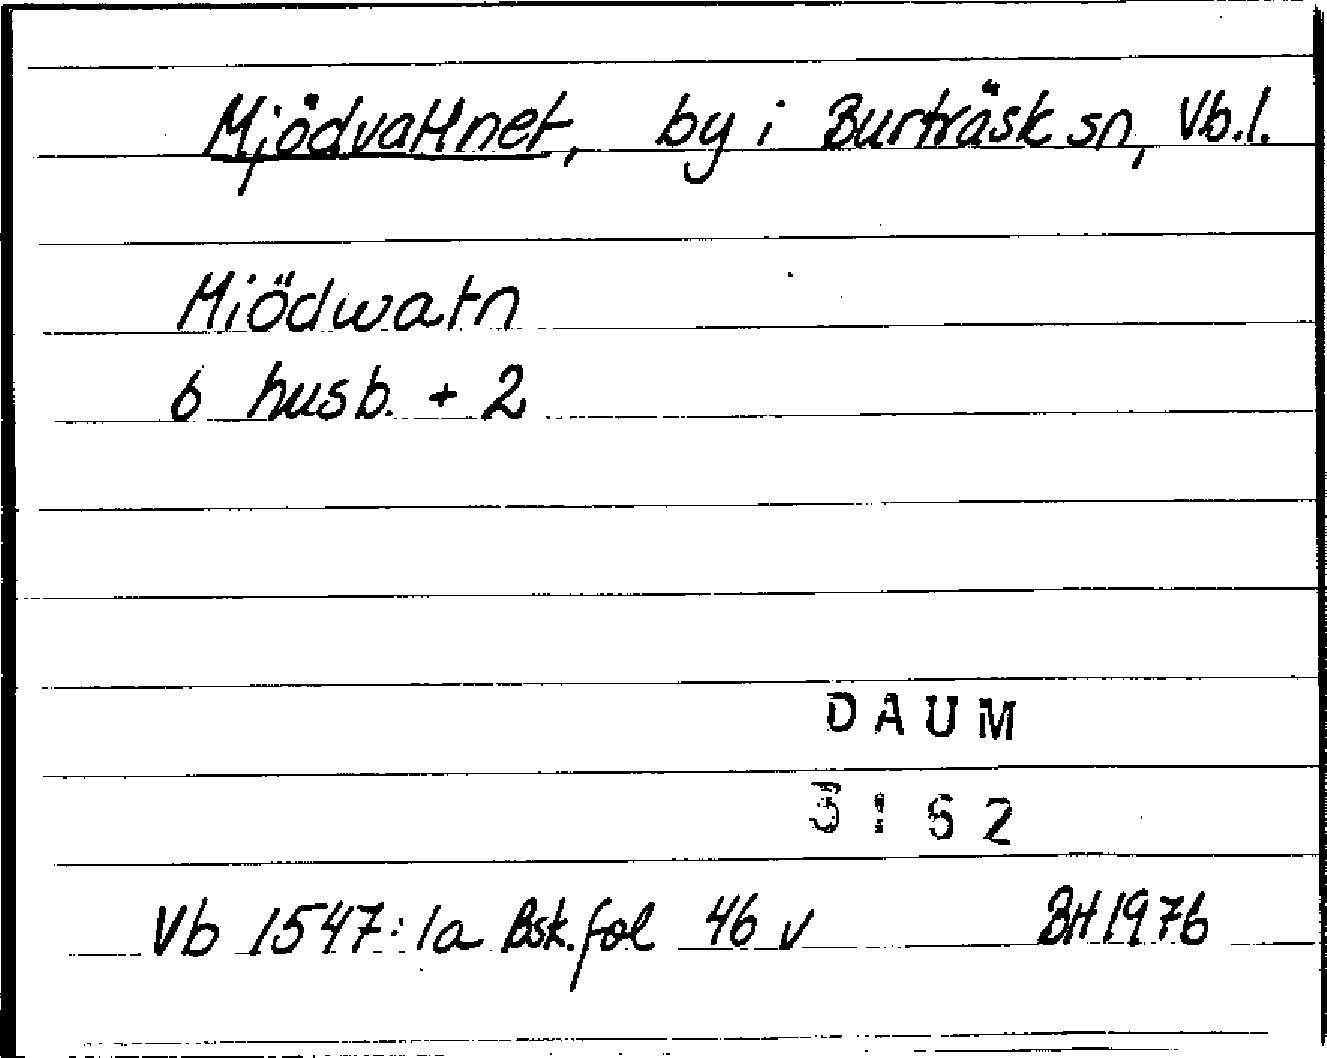 Mjödvattnet, by i Burträsk sn, Vb.l.
Miödwatn
6 husb. + 2
DAUM
Vb 1547:1a Bsk.fol 46 v BH 1976